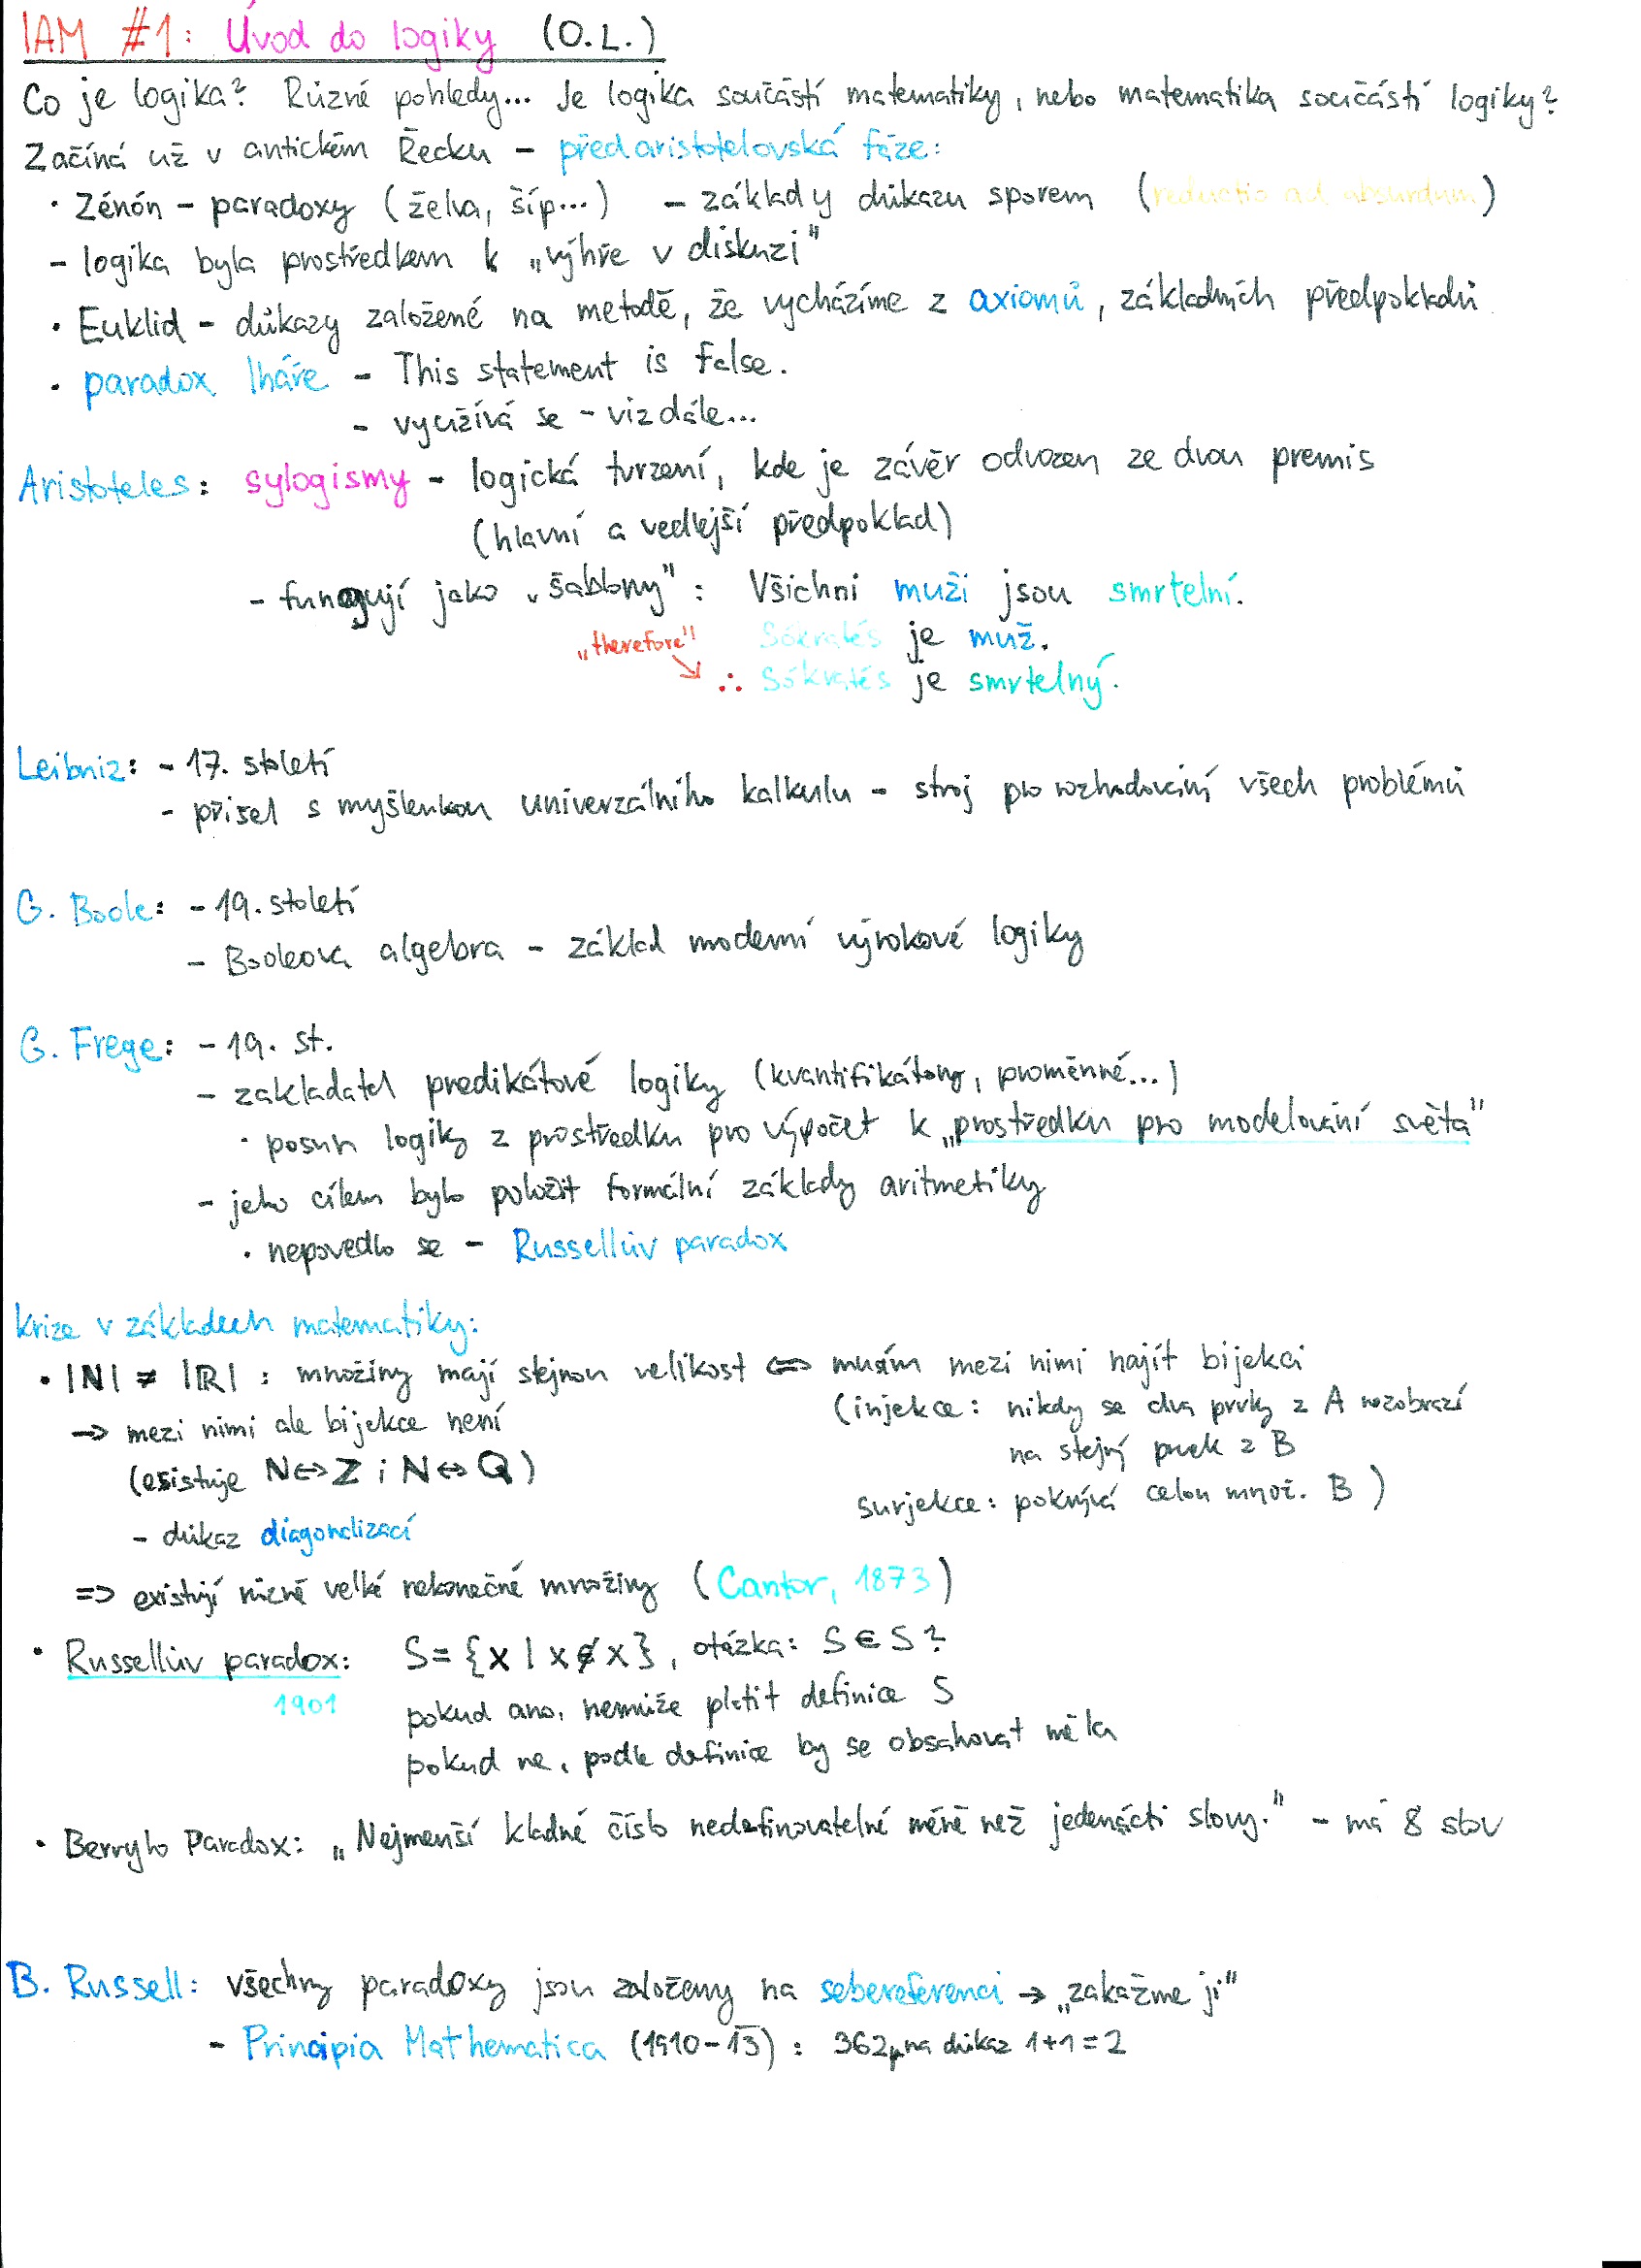 IAM #1: Úvod do logiky (O.L.)
Co je logika? Různé pohledy... Je logika součástí matematiky, nebo matematika součástí logiky?
Začíná už v antickém Řecku – předaristotelovská fáze:
• Zénón – paradoxy (želva, šíp...) – základy důkazu sporem (reductio ad absurdum)
– logika byla prostředkem k „výhře v diskuzi"
• Euklid – důkazy založené na metodě, že vycházíme z axiomů, základních předpokladů
• paradox lháře – This statement is False.
– využívá se – viz dále...
Aristoteles: sylogismy – logická tvrzení, kde je závěr odvozen ze dvou premis
(hlavní a vedlejší předpoklad)
– fungují jako „šablony": Všichni muži jsou smrtelní.
„therefore" Sókratés je muž.
∴ Sókratés je smrtelný.
Leibniz: – 17. století
– přišel s myšlenkou univerzálního kalkulu – stroj pro rozhodování všech problémů
G. Boole: – 19. století
– Booleova algebra – základ moderní výrokové logiky
G. Frege: – 19. st.
– zakladatel predikátové logiky (kvantifikátory, proměnné...)
• posun logiky z prostředku pro výpočet k „prostředku pro modelování světa"
– jeho cílem bylo položit formální základy aritmetiky
• nepovedlo se – Russellův paradox
Krize v základech matematiky:
• |N| ≠ |R| : množiny mají stejnou velikost ⇔ musím mezi nimi najít bijekci
(injekce: nikdy se dva prvky z A nezobrazí
na stejný prvek z B
surjekce: pokrývá celou množ. B)
→ mezi nimi ale bijekce není
(existuje N↔Z i N↔Q)
– důkaz diagonalizací
=> existují různě velké nekonečné množiny (Cantor, 1873)
• Russellův paradox: S = {x | x ∉ x}, otázka: S ∈ S?
1901
pokud ano, nemůže platit definice S
pokud ne, podle definice by se obsahovat měla
• Berryho Paradox: „Nejmenší kladné číslo nedefinovatelné méně než jedenácti slovy." – má 8 slov
B. Russell: všechny paradoxy jsou založeny na sebereferenci → „zakažme ji"
– Principia Mathematica (1910–13): 362 na důkaz 1+1=2